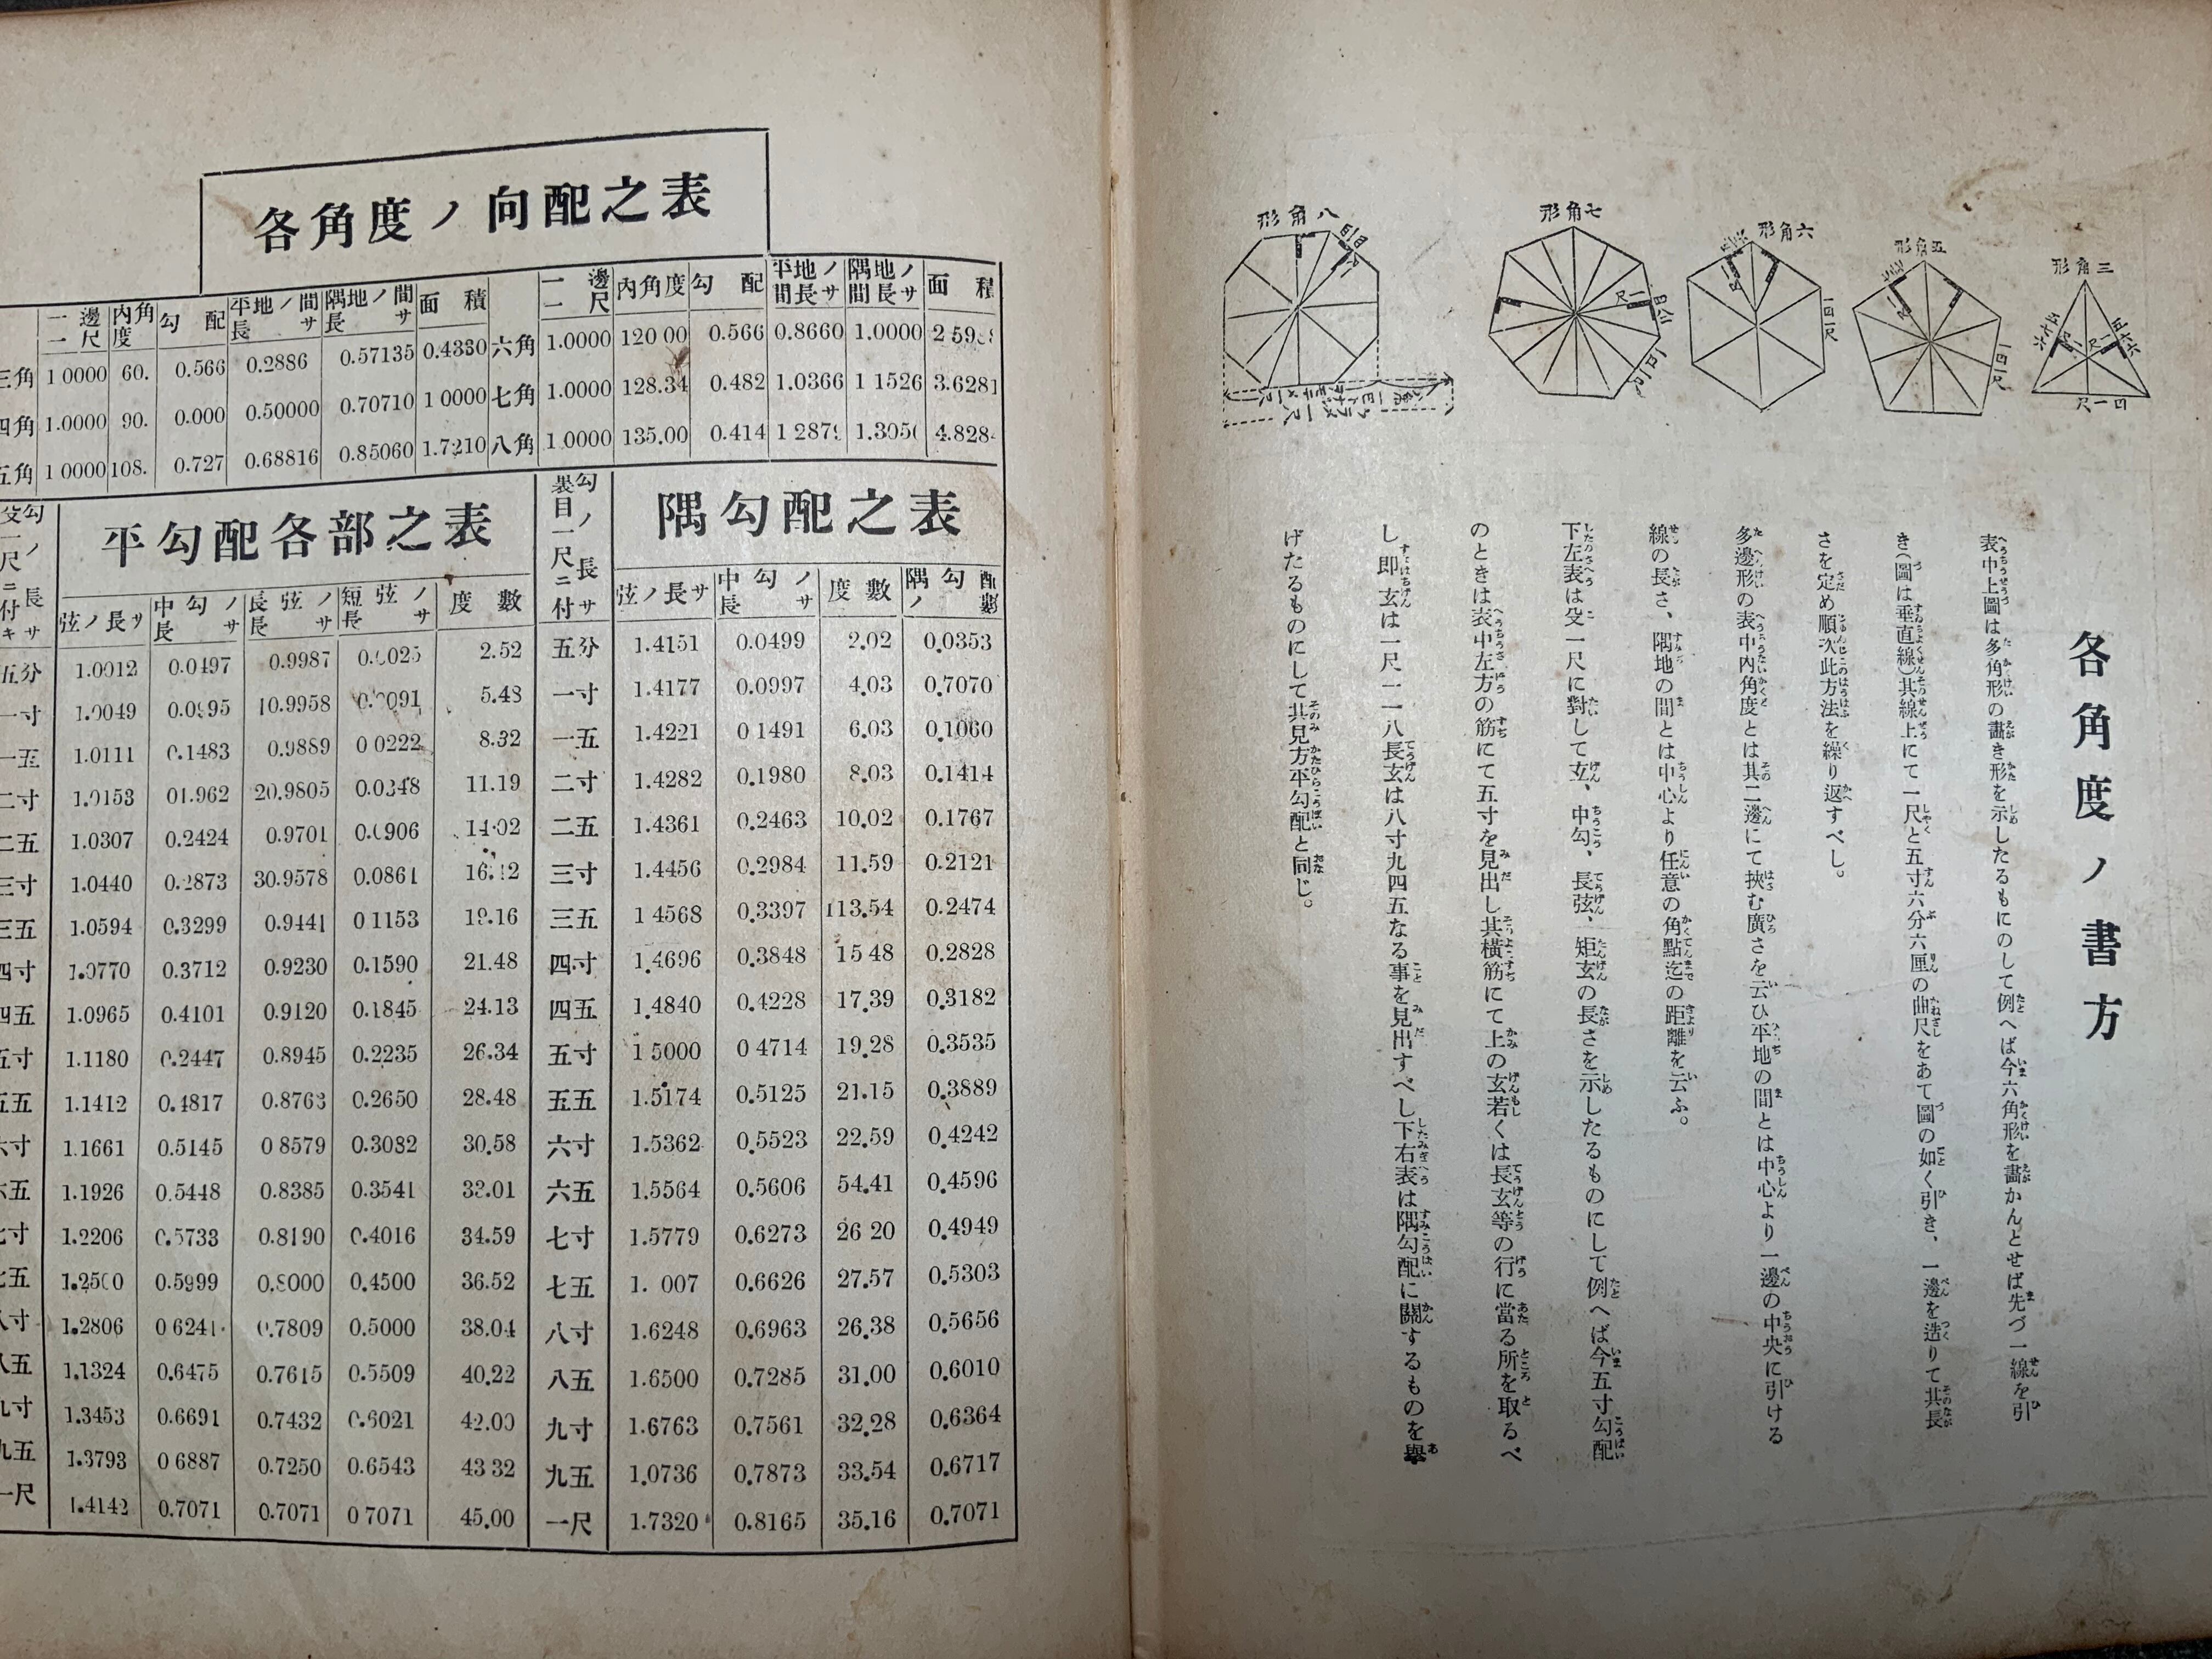 各角度ノ書方
三角形
五角形
六角形
七角形
八角形
表中上圖は多角形の畫き形を示したるもにのして例へば今六角形を畫かんとせば先づ一線を引
き(圖は垂直線)其線上にて一尺と五寸六分六厘の曲尺をあて圖の如く引き、一邊を造りて其長
さを定め順次此方法を繰り返すべし。
多邊形の表中內角度とは其二邊にて挾む廣さを云ひ平地の間とは中心より一邊の中央に引ける
線の長さ、隅地の間とは中心より任意の角點迄の距離を云ふ。
下左表は殳一尺に對して玄、中勾、長弦、矩玄の長さを示したるものにして例へば今五寸勾配
のときは表中左方の筋にて五寸を見出し其橫筋にて上の玄若くは長玄等の行に當る所を取るべ
し卽玄は一尺一一八長玄は八寸九四五なる事を見出すべし下右表は隅勾配に關するものを擧
げたるものにして其見方平勾配と同じ。
各角度ノ向配之表
一邊一尺 內角度 勾配 平地ノ間長サ 隅地ノ間長サ 面積
三角 1 0000 60. 0.566 0.2886 0.57135 0.4330
四角 1.0000 90. 0.000 0.50000 0.70710 1 0000
五角 1 0000 108. 0.727 0.68816 0.85060 1.7210
一邊一尺 內角度 勾配 平地ノ間長サ 隅地ノ間長サ 面積
六角 1.0000 120 00 0.566 0.8660 1.0000
七角 1.0000 128.34 0.482 1.0366 1 1526 3.6281
八角 1.0000 135.00 0.414
平勾配各部之表
殳一尺ニ付キ勾ノ長サ 弦ノ長サ 中勾ノ長サ 長弦ノ長サ 短弦ノ長サ 度數
五分 1.0012 0.0497 0.9987 2.52
一寸 1.0049 10.9958 5.48
一五 1.0111 0.1483 0.9889 0 0222 8.32
二寸 1.0153 01.962 20.9805 0.0348 11.19
二五 1.0307 0.2424 0.9701 14.02
三寸 1.0440 0.2873 30.9578 0.0861 16.12
三五 1.0594 0.3299 0.9441 0 1153 19.16
四寸 1.0770 0.3712 0.9230 0.1590 21.48
四五 1.0965 0.4101 0.9120 0.1845 24.13
五寸 1.1180 0.2447 0.8945 0.2235 26.34
五五 1.1412 0.4817 0.8763 0.2650 28.48
六寸 1.1661 0.5145 0 8579 0.3082 30.58
六五 1.1926 0.5448 0.8385 0.3541 33.01
七寸 1.2206 0.5733 0.8190 0.4016 34.59
七五 1.2500 0.5999 0.8000 0.4500 36.52
八寸 1.2806 0 6241 0.7809 0.5000 38.04
八五 1.1324 0.6475 0.7615 0.5509 40.22
九寸 1.3453 0.6691 0.7432 0.6021 42.00
九五 1.3793 0 6887 0.7250 0.6543 43 32
一尺 1.4142 0.7071 0.7071 0 7071 45.00
隅勾配之表
裏目一尺ニ付勾ノ長サ 弦ノ長サ 中勾ノ長サ 度數 隅勾ノ配數
五分 1.4151 0.0499 2.02 0.0353
一寸 1.4177 0.0997 4.03 0.7070
一五 1.4221 0 1491 6.03 0.1060
二寸 1.4282 0.1980 8.03 0.1414
二五 1.4361 0.2463 10.02 0.1767
三寸 1.4456 0.2984 11.59 0.2121
三五 1 4568 0.3397 113.54 0.2474
四寸 1.4696 0.3848 15 48 0.2828
四五 1.4840 0.4228 17.39 0.3182
五寸 1 5000 0 4714 19.28 0.3535
五五 1.5174 0.5125 21.15 0.3889
六寸 1.5362 0.5523 22.59 0.4242
六五 1.5564 0.5606 54.41 0.4596
七寸 1.5779 0.6273 26 20 0.4949
七五 1. 007 0.6626 27.57 0.5303
八寸 1.6248 0.6963 26.38 0.5656
八五 1.6500 0.7285 31.00 0.6010
九寸 1.6763 0.7561 32.28 0.6364
九五 1.0736 0.7873 33.54 0.6717
一尺 1.7320 0.8165 35.16 0.7071